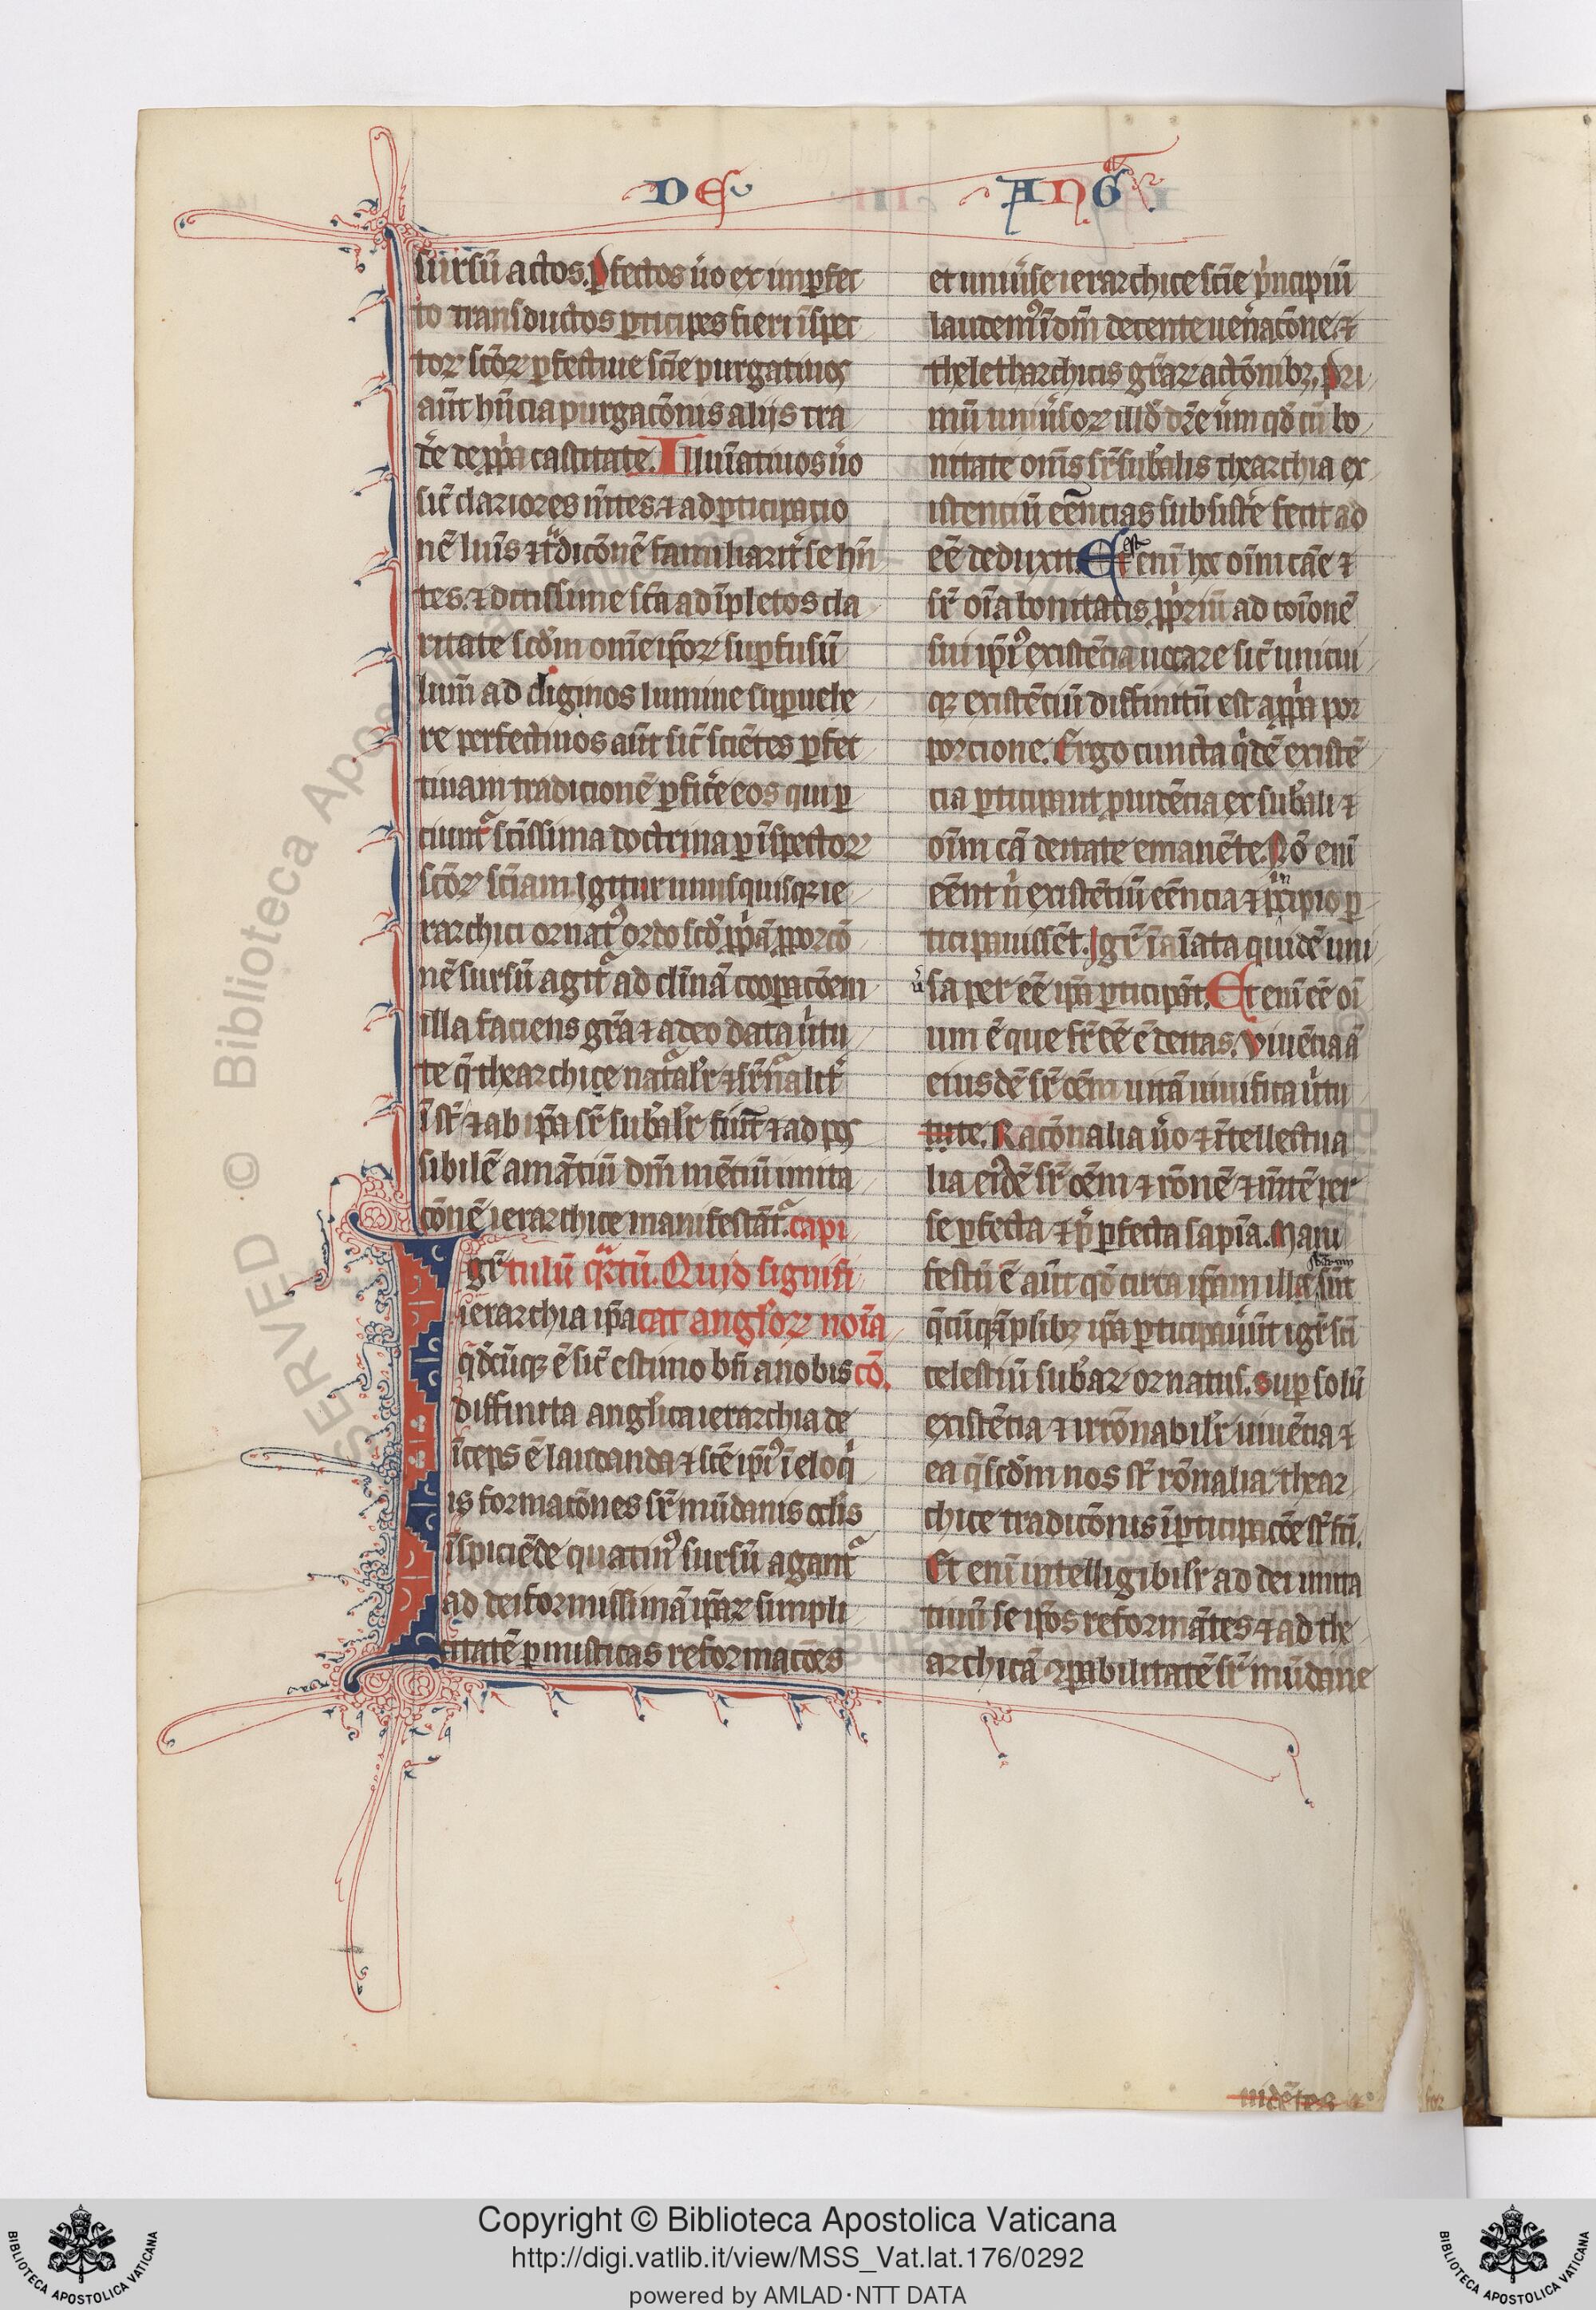 DE
ANG̃
sursũ actos. ꝑfectos ũo ex imꝑfec
to transductos ꝑticipes fieri ĩspec
toꝝ sc̃oꝝ ꝑfectiue sc̃ie purgatiuos
aũt hñcia purgac̃onis alijs tra
de᷑ de ꝓp̃a castitate. Illuĩatiuos ũo
sic̃ clariores m̃tes ⁊ ad ꝑticipacio
nẽ luĩs ⁊ t̃dic̃onẽ familiarit̃ se hñ
tes. ⁊ ditissime sc̃a adĩpletos cla
ritate scd̃m om̃e ip̃oꝝ suꝑfusũ
lum̃ ad diginos lumine suꝑuehe
re perfectiuos aũt sic̃ sciẽtes ꝑfec
tiuam tradicionẽ ꝑfice᷑ eos qui ꝑ
ciunt᷑ sc̃issima doctrina ꝑ ĩspectoꝝ
sc̃oꝝ sc̃iam. Igitur unusquisqꝫ ie
rarchici ornatꝰ ordo scd̃ ꝓp̃ã ꝓporc̃o
nẽ sursũ agit᷑ ad diĩnã cooꝑac̃oem
illa faciens gr̃a ⁊ a deo data ũtu
te q̃ thearchice nat᷑al̃r ⁊ sr̃nat᷑alit᷑
ĩ st᷑ ⁊ ab ip̃a sr̃ sub̃al̃r fiũt ⁊ ad pos
sibilẽ amãtiũ dm̃ mẽtiũ imita
c̃onẽ ierarchice manifestãt᷑. capi
gr̃ tulũ q̃rtũ. Quid signifi
ierarchia ip̃a cat angl̃oꝝ noĩa
qd̃cũqꝫ ẽ sic̃ estimo bñ a nobis cõ.
diffinita angl̃ica ierarchia de
ĩceps ẽ laudanda ⁊ sc̃e ip̃iꝰ ĩ eloq̃
is formac̃ones sr̃ mũdanis ocl̃is
ĩspiciẽde quatinꝰ sursũ agant᷑
ad deiformissimã ip̃aꝝ simpli
citatẽ ꝑ misticas reformac̃oes
et uniũse ierarchice sc̃ie p̃ncipiũ
laudemꝰ ĩ dm̃ decente uen̾ac̃one. ⁊
theletharchicis gr̃aꝝ actõnibꝫ. pri
mũ uniũsoꝝ illd̃ dr̃e ũm qd̃ cũ bo
nitate om̃s sr̃sub̃alis thearchia ex
istenciũ eẽncias subsiste᷑ fecit ad
eẽ deduxit. Et est enĩ hoc oĩm cãe ⁊
sr̃ oĩa bonitatis ꝓp̃riũ ad coĩonẽ
sui ip̃iꝰ existẽcia uocare sic̃ unicui
qꝫ existẽciũ diffinitũ est a ꝓp̃a por
porcione. Ergo cuncta q̃dẽ existẽ
cia ꝑticipant ꝓuidẽcia ex sub̃ali ⁊
oĩm cã deitate emanẽte. Nõ enĩ
eẽnt ñ existẽciũ eẽncia ⁊ p̃cipio in ꝑ
ticipauissẽt. Igr̃ ĩaĩata quidẽ uni
ũsa per eẽ ip̃a ꝑticipãt. Et enĩ eẽ oĩ
um ẽ que sr̃ eẽ ẽ deitas. Viuẽcia ã
eiusdẽ sr̃ oẽm uitã uiuifica ũtu
tute. Rac̃onalia ũo ⁊ ĩtellectua
lia eiꝰdẽ sr̃ oẽm ⁊ rõnẽ ⁊ m̃tẽ per
se ꝑfecta ⁊ p̃ ꝑfecta sapĩa. Mani
festũ ẽ aũt qd̃ circa ip̃am ille sũt
q̃cũqꝫ ĩ plibꝫ ip̃a ꝑticipauũt igr̃ sc̃i
celestiũ sub̃aꝝ ornatus. Suꝑ solũ
existẽcia ⁊ irrõnabil̃r uiuẽcia ⁊
ea q̃ scd̃m nos st᷑ rõnalia. thear
chice tradic̃onis ĩ ꝑticipac̃oe st᷑ sc̃i.
Et enĩ intelligibil̃r ad dei imita
tiuũ se ip̃os reformãtes ⁊ ad the
archicã ꝯꝑabilitatẽ sr̃ mũdane
Copyright © Biblioteca Apostolica Vaticana
http://digi.vatlib.it/view/MSS_Vat.lat.176/0292
powered by AMLAD·NTT DATA
BIBLIOTECA APOSTOLICA VATICANA
BIBLIOTECA APOSTOLICA VATICANA